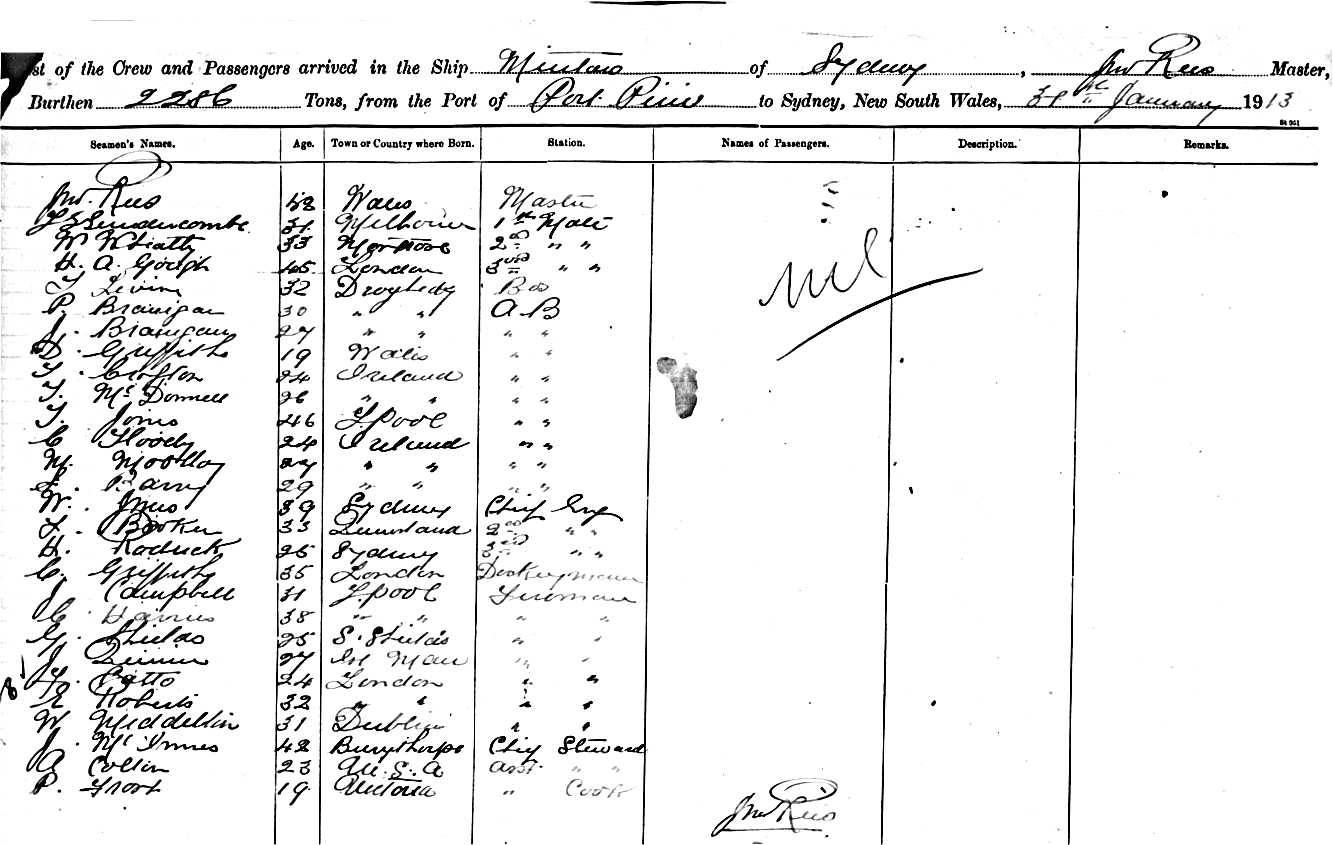 st of the Crew and Passengers arrived in the Ship Mintaro of Sydney, Jno Rees Master,
Burthen 2286 Tons, from the Port of Port Pirie to Sydney, New South Wales, 31st January 1913
Seamen's Names. Age. Town or Country where Born. Station. Names of Passengers. Description. Remarks.
Jno. Rees 52 Wales Master
31 Melbourne 1st Mate
W 33 2nd " "
H. A. Gough 45 London 3rd " "
T 32 Bos
P. Branigan 30 " " A B
J. Branigan 27 " " " "
D. Griffiths 19 Wales " "
T. Crofton 24 Ireland " "
T. McDonnell 26 " " " "
T. Jones 46 L.pool " "
C 24 Ireland " "
M. 27 " " " "
Barry 29 " " " "
W. 39 Sydney Chief Eng
Booker 33 Queensland 2nd " "
H. Rodrick 25 Sydney 3rd " "
C. Griffiths 35 London Donkeyman
J Campbell 31 L.pool Fireman
C Harris 38 " " " "
G. Shields 25 S. Shields " "
J. 27 Isl Man " "
24 London " "
E Roberts 32 " " " "
W Middleton 31 Dublin " "
J. McInnes 42 Burythorpe Chief Steward
A Collin 23 U. S. A Asst " "
P. Frost 19 Victoria " Cook
Nil
Jno Rees